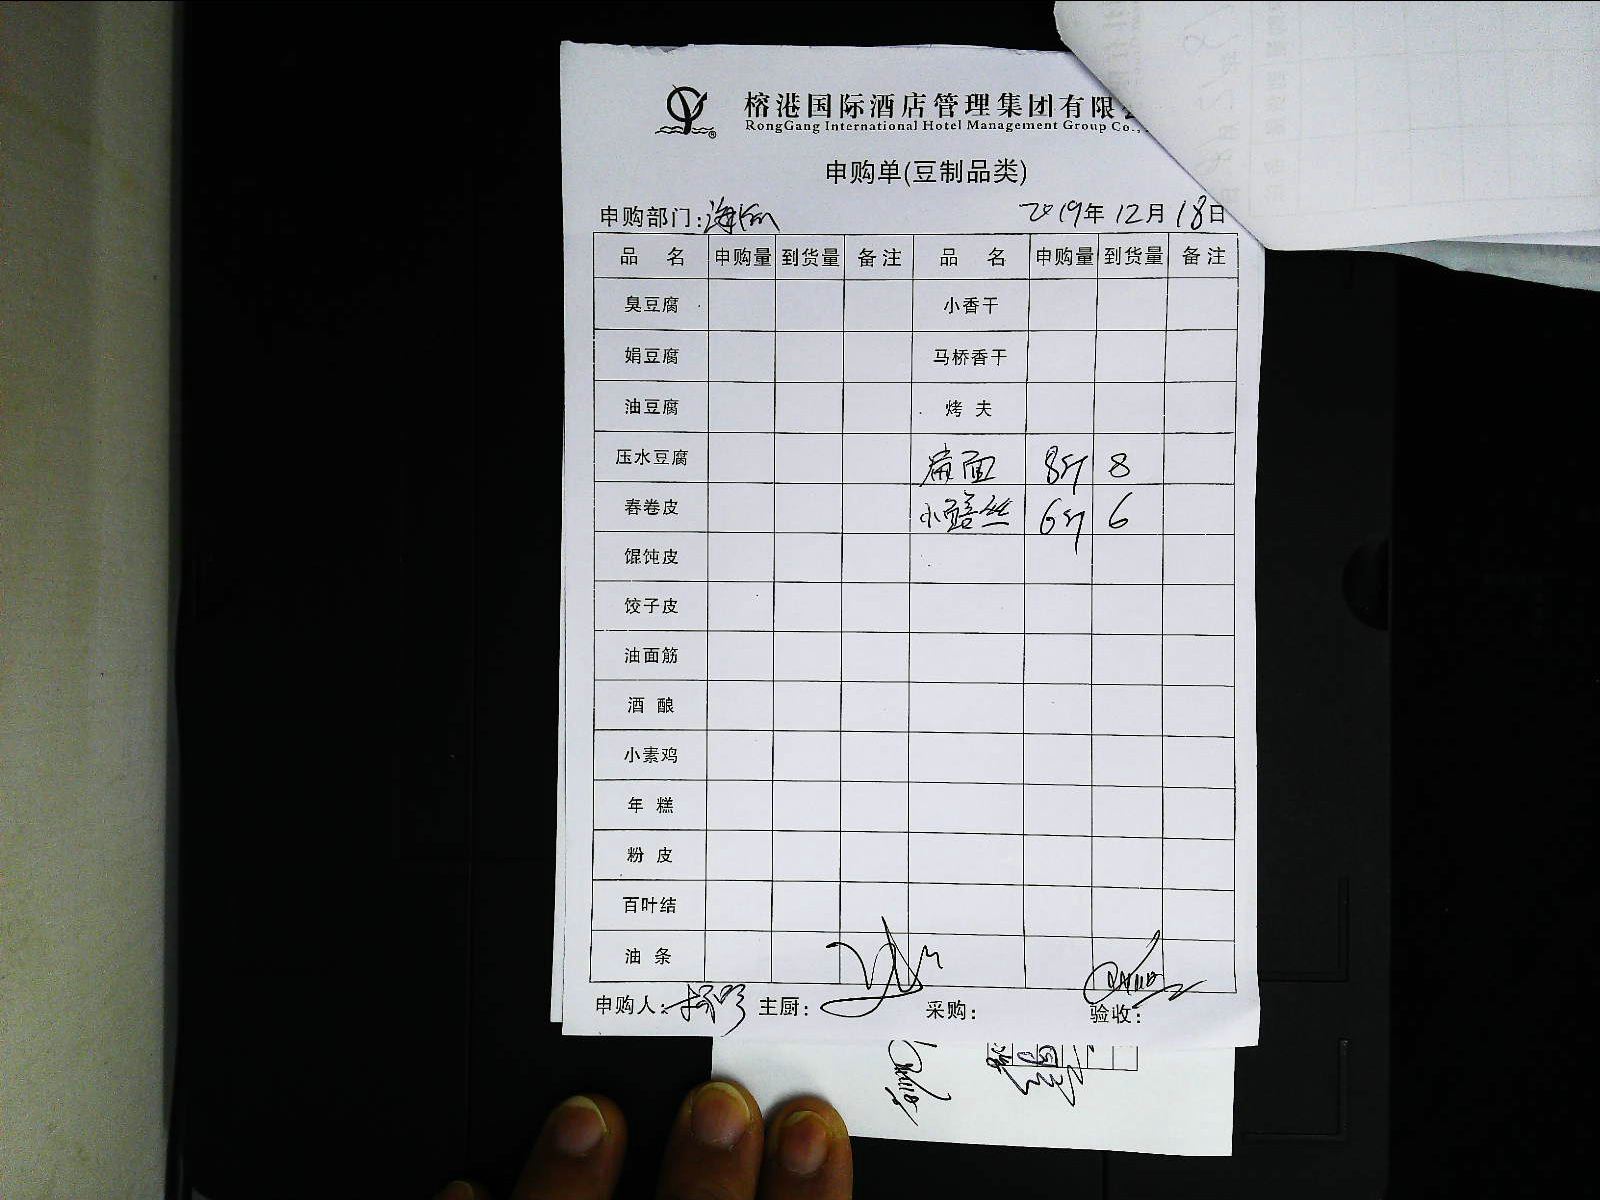 榕港国际酒店管理集团有限
RongGang International Hotel Management Group Co.,
申购单(豆制品类)
申购部门: 2019年12月18日
品名 申购量 到货量 备注 品名 申购量 到货量 备注
臭豆腐 小香干
娟豆腐 马桥香干
油豆腐 烤夫
压水豆腐 面 8斤 8
春卷皮 小鳝丝 6斤 6
馄饨皮
饺子皮
油面筋
酒酿
小素鸡
年糕
粉皮
百叶结
油条
申购人: 主厨: 采购: 验收: